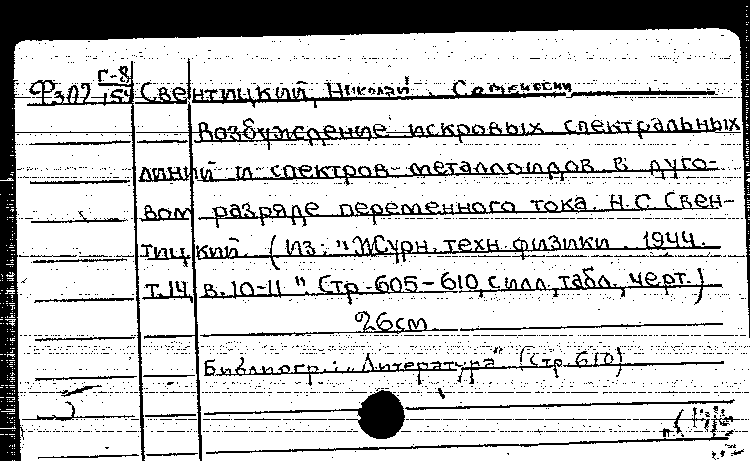 Ф307 Г-8
154 Свентицкий, Николай Семенович
Возбуждение искровых спектральных
линий и спектров металлоидов в дуго-
вом разряде переменного тока. Н.С. Свен-
тицкий. (Из: "Журн. техн. физики. 1944.
т.14, в.10-11". Стр. 605-610, с илл., табл., черт.)
26см
Библиогр.: "Литература" (стр. 610)